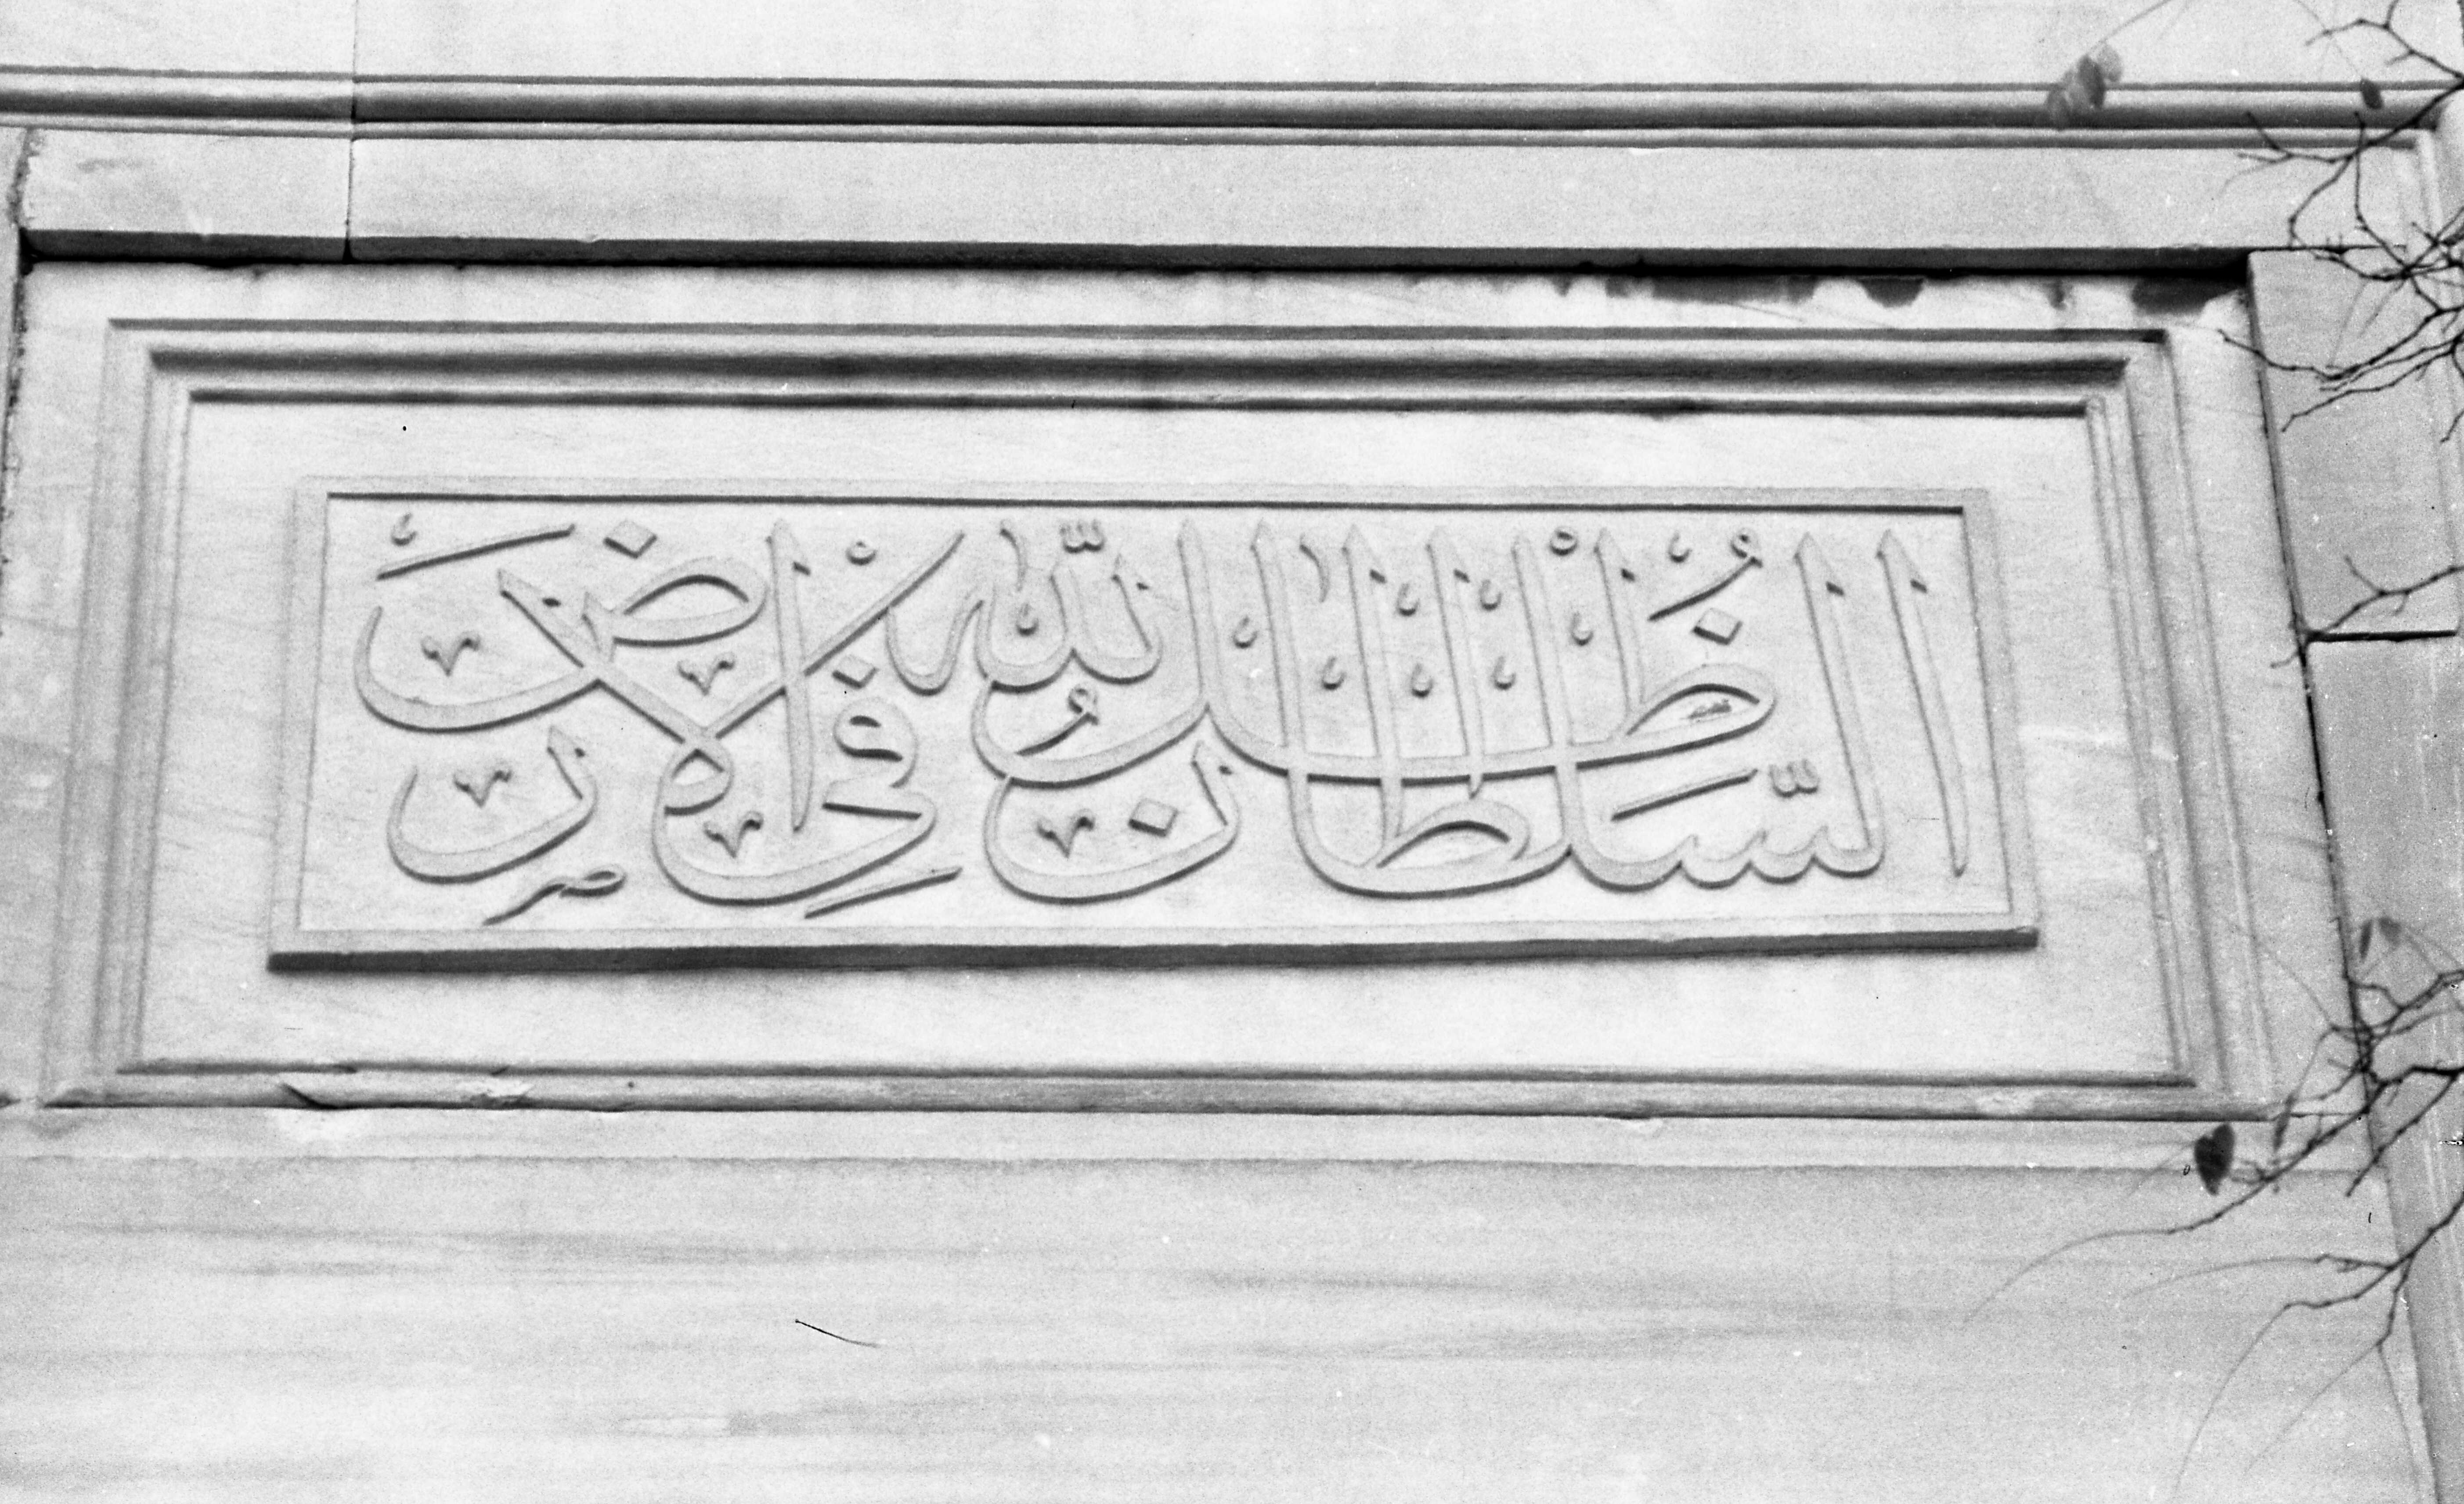 اَلسَّلْطَانُ ظِلُّ اللّٰهِ فِي الْاَرْضِ